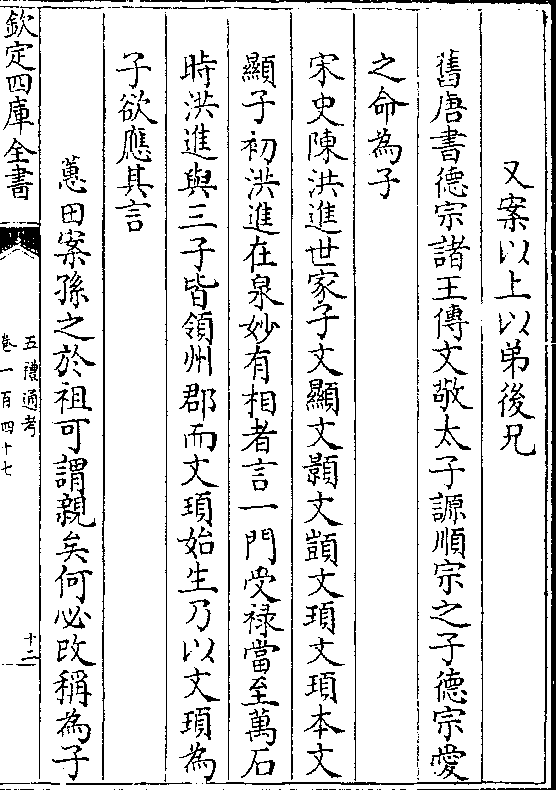 又案以上以弟後兄
舊唐書德宗諸王傳文敬太子謜順宗之子德宗愛
之命為子
宋史陳洪進世家子文顯文顥文顗文頊文頊本文
顯子初洪進在泉妙有相者言一門受禄當至萬石
時洪進與三子皆領州郡而文頊始生乃以文頊為
子欲應其言
蕙田案孫之於祖可謂親矣何必改稱為子
欽定四庫全書
五禮通考
卷一百四十七
十二